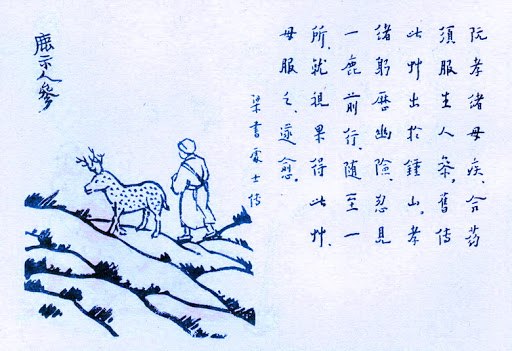 阮孝緒母疾、合葯
須服生人參。舊傳
此艸出於鍾山。孝
緒躬歷幽險、忽見
一鹿前行、隨至一
所、就視果得此艸、
母服之、遂愈。
梁書處士傳
鹿示人參